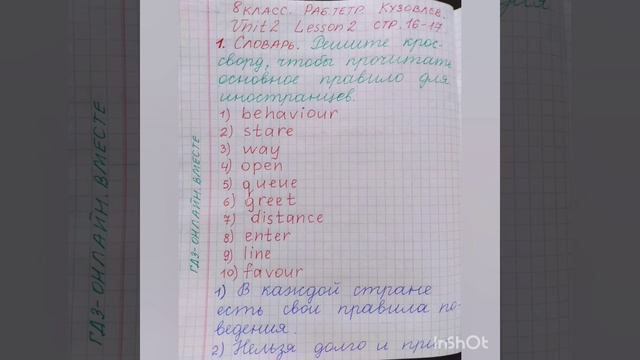 8 КЛАСС. РАБ. ТЕТР. КУЗОВЛЕВ.
Unit 2 Lesson 2 СТР. 16-17
1. СЛОВАРЬ. Решите крос-
сворд, чтобы прочитать
основное правило для
иностранцев.
1) behaviour
2) stare
3) way
4) open
5) queue
6) greet
7) distance
8) enter
9) line
10) favour
1) В каждой стране
есть свои правила по-
ведения.
2) Нельзя долго и при
ГДЗ-ОНЛАЙН. ВМЕСТЕ
InShOt